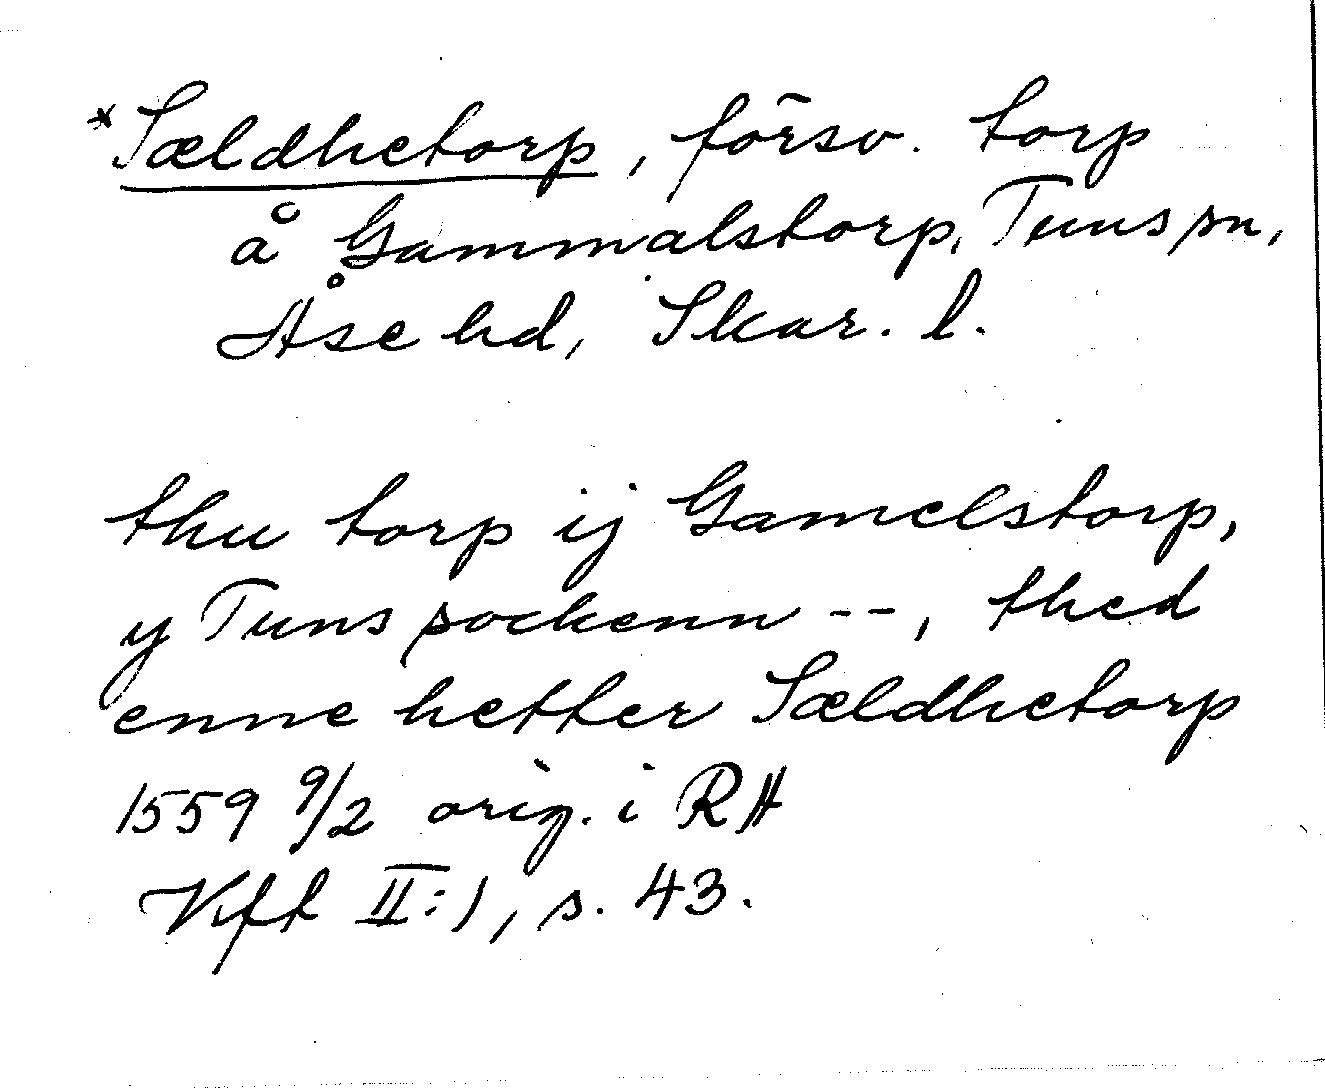 *Sældhetorp, försv. torp
å Gammalstorp, Tuns sn,
Åse hd, Skar. l.
thu torp ij Gamelstorp,
y Tuns sockenn --, thed
enne hetter Sældhetorp
1559 9/2 orig. i RA
Vft II:1, s. 43.